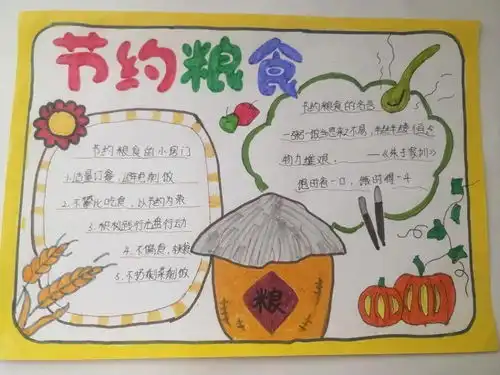 节约粮食
节约粮食的小窍门
1.适量订餐，避免剩饭
2.不攀比吃食，以节约为荣
3.积极践行光盘行动
4.不偏食，挑食
5.不扔剩菜剩饭
节约粮食的名言
一粥一饭当思来之不易，半丝半缕恒念
物力维艰. ——《朱子家训》
田有一日，
粮